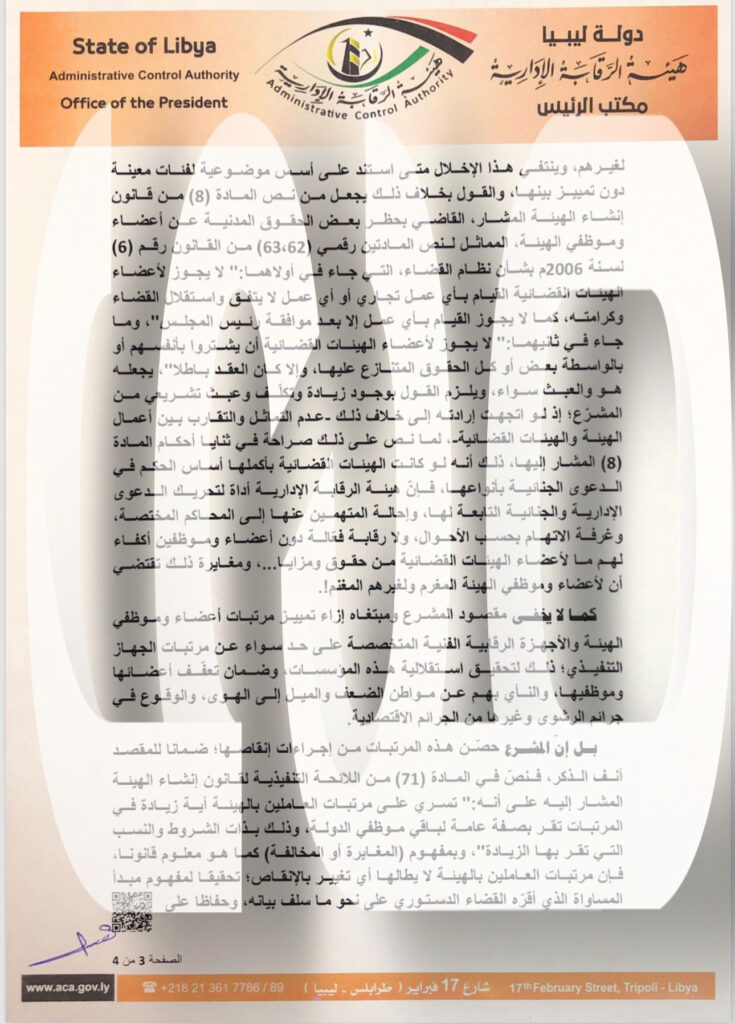 State of Libya
Administrative Control Authority
Office of the President
هيئة الرقابة الإدارية
Administrative Control Authority
دولة ليبيا
هيئة الرقابة الإدارية
مكتب الرئيس
لغيرهم، وينتفي هذا الإخلال متى استند على أسس موضوعية لفئات معينة
دون تمييز بينها، والقول بخلاف ذلك يجعل من نص المادة (8) من قانون
إنشاء الهيئة المشار، القاضي بحظر بعض الحقوق المدنية عن أعضاء
وموظفي الهيئة، المماثل لنص المادتين رقمي (63،62) من القانون رقم (6)
لسنة 2006م بشأن نظام القضاء، التي جاء في أولاهما:" لا يجوز لأعضاء
الهيئات القضائية القيام بأي عمل تجاري أو أي عمل لا يتفق واستقلال القضاء
وكرامته، كما لا يجوز القيام بأي عمل إلا بعد موافقة رئيس المجلس"، وما
جاء في ثانيهما:" لا يجوز لأعضاء الهيئات القضائية أن يشتروا بأنفسهم أو
بالواسطة بعض أو كل الحقوق المتنازع عليها، وإلا كان العقد باطلا"، يجعله
هو والعبث سواء، ويلزم القول بوجود زيادة وتكلّف وعبث تشريعي من
المشرّع؛ إذ لو اتجهت إرادته إلى خلاف ذلك -عدم التماثل والتقارب بين أعمال
الهيئة والهيئات القضائية-، لما نص على ذلك صراحة في ثنايا أحكام المادة
(8) المشار إليها، ذلك أنه لو كانت الهيئات القضائية بأكملها أساس الحكم في
الدعوى الجنائية بأنواعها، فإنّ هيئة الرقابة الإدارية أداة لتحريك الدعوى
الإدارية والجنائية التابعة لها، وإحالة المتهمين عنها إلى المحاكم المختصة،
وغرفة الاتهام بحسب الأحوال، ولا رقابة فعّالة دون أعضاء وموظفين أكفاء
لهم ما لأعضاء الهيئات القضائية من حقوق ومزايا...، ومغايرة ذلك تقتضي
أن لأعضاء وموظفي الهيئة المغرم ولغيرهم المغنم!.
كما لا يخفى مقصود المشرع ومبتغاه إزاء تمييز مرتبات أعضاء وموظفي
الهيئة والأجهزة الرقابية الفنية المتخصصة على حد سواء عن مرتبات الجهاز
التنفيذي؛ ذلك لتحقيق استقلالية هذه المؤسسات، وضمان تعفّف أعضائها
وموظفيها، والنأي بهم عن مواطن الضعف والميل إلى الهوى، والوقوع في
جرائم الرشوى وغيرها من الجرائم الاقتصادية.
بل إنّ المشرع حصّن هذه المرتبات من إجراءات إنقاصها؛ ضمانا للمقصد
آنف الذكر، فنصّ في المادة (71) من اللائحة التنفيذية لقانون إنشاء الهيئة
المشار إليه على أنه:" تسري على مرتبات العاملين بالهيئة أية زيادة في
المرتبات تقر بصفة عامة لباقي موظفي الدولة، وذلك بذات الشروط والنسب
التي تقر بها الزيادة"، وبمفهوم (المغايرة أو المخالفة) كما هو معلوم قانونا،
فإن مرتبات العاملين بالهيئة لا يطالها أي تغيير بالإنقاص؛ تحقيقا لمفهوم مبدأ
المساواة الذي أقرّه القضاء الدستوري على نحو ما سلف بيانه، وحفاظا على
الصفحة 3 من 4
www.aca.gov.ly
+218 21 361 7786 / 89
شارع 17 فبراير ( طرابلس - ليبيا )
17th February Street, Tripoli - Libya